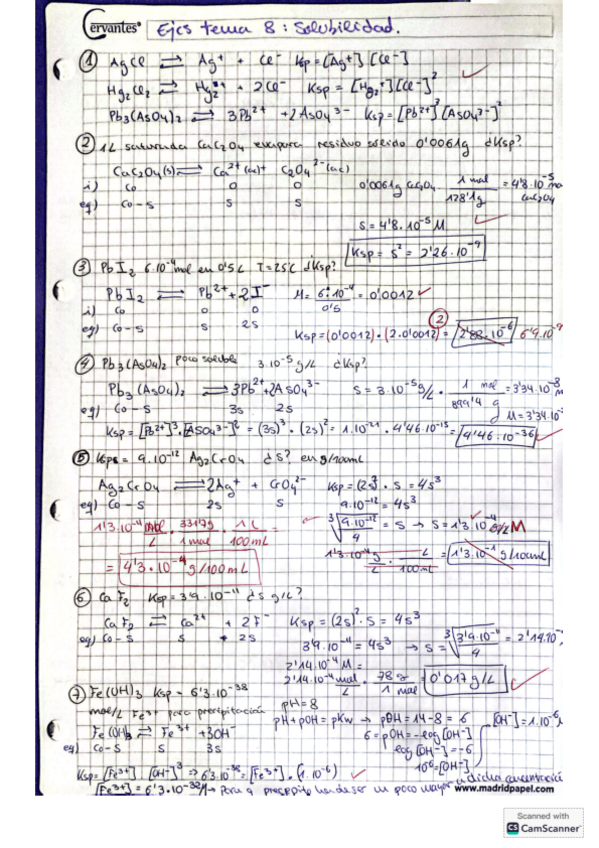 Cervantes® Ejcs tema 8: Solubilidad.
① AgCl ⇌ Ag⁺ + Cl⁻ Ksp = [Ag⁺] [Cl⁻]
Hg₂Cl₂ ⇌ Hg₂²⁺ + 2Cl⁻ Ksp = [Hg₂²⁺][Cl⁻]²
Pb₃(AsO₄)₂ ⇌ 3Pb²⁺ + 2AsO₄³⁻ Ksp = [Pb²⁺]³[AsO₄³⁻]²
② 1L saturada CaC₂O₄ evapora residuo sólido 0'0061g ¿Ksp?
CaC₂O₄(s) ⇌ Ca²⁺(ac) + C₂O₄²⁻(ac)
i) Co 0 0 0'0061g CaC₂O₄ · 1 mol / 128'1g = 4'8·10⁻⁵ mo CaC₂O₄
eq) Co-s s s
s = 4'8·10⁻⁵ M
Ksp = s² = 2'26·10⁻⁹
③ PbI₂ 6·10⁻⁴mol en 0'5L T=25ºC ¿Ksp?
PbI₂ ⇌ Pb²⁺ + 2I⁻ M = 6·10⁻⁴ / 0'5 = 0'0012
i) Co 0 0
eq) Co-s s 2s
Ksp = (0'0012)·(2·0'0012)² = 2'88·10⁻⁶ 6'9·10⁻⁹
④ Pb₃(AsO₄)₂ poco soluble 3·10⁻⁵ g/L ¿Ksp?
Pb₃(AsO₄)₂ ⇌ 3Pb²⁺ + 2AsO₄³⁻ s = 3·10⁻⁵ g/L · 1 mol / 899'4 g = 3'34·10⁻⁸ M
eq) Co-s 3s 2s M = 3'34·10⁻
Ksp = [Pb²⁺]³·[AsO₄³⁻]² = (3s)³·(2s)² = 1·10⁻²¹ · 4'46·10⁻¹⁵ = 4'46·10⁻³⁶
⑤ Kps = 9·10⁻¹² Ag₂CrO₄ ¿s? en g/100mL
Ag₂CrO₄ ⇌ 2Ag⁺ + CrO₄²⁻ Ksp = (2s)² · s = 4s³
eq) Co-s 2s s 9·10⁻¹² = 4s³
1'3·10⁻⁴ mol/L · 331'7g / 1 mol · 1 L / 100mL = ∛(9·10⁻¹² / 4) = s → s = 1'3·10⁻⁴ g/L M
= 4'3·10⁻⁴ g/100mL 1'3·10⁻⁴ g/L · L / 100mL = 1'3·10⁻¹ g/100mL
⑥ CaF₂ Ksp = 3'9·10⁻¹¹ ¿s g/L?
CaF₂ ⇌ Ca²⁺ + 2F⁻ Ksp = (2s)² · s = 4s³
eq) Co-s s + 2s 3'9·10⁻¹¹ = 4s³ → s = ∛(3'9·10⁻¹¹ / 4) = 2'14·10⁻
2'14·10⁻⁴ M =
2'14·10⁻⁴ mol/L · 78 g / 1 mol = 0'017 g/L
⑦ Fe(OH)₃ Ksp = 6'3·10⁻³⁸ pH = 8
mol/L Fe³⁺ para precipitación pH + pOH = pKw → pOH = 14-8 = 6 [OH⁻] = 1·10⁻⁶
Fe(OH)₃ ⇌ Fe³⁺ + 3OH⁻ 6 = pOH = -log[OH⁻]
eq) Co-s s 3s log[OH⁻] = -6
10⁻⁶ = [OH⁻]
Ksp = [Fe³⁺] [OH⁻]³ ⇒ 6'3·10⁻³⁸ = [Fe³⁺]·(1·10⁻⁶)
[Fe³⁺] = 6'3·10⁻³² M → Para q precipite ha de ser un poco mayor a dicha concentración
www.madridpapel.com
Scanned with
CS CamScanner